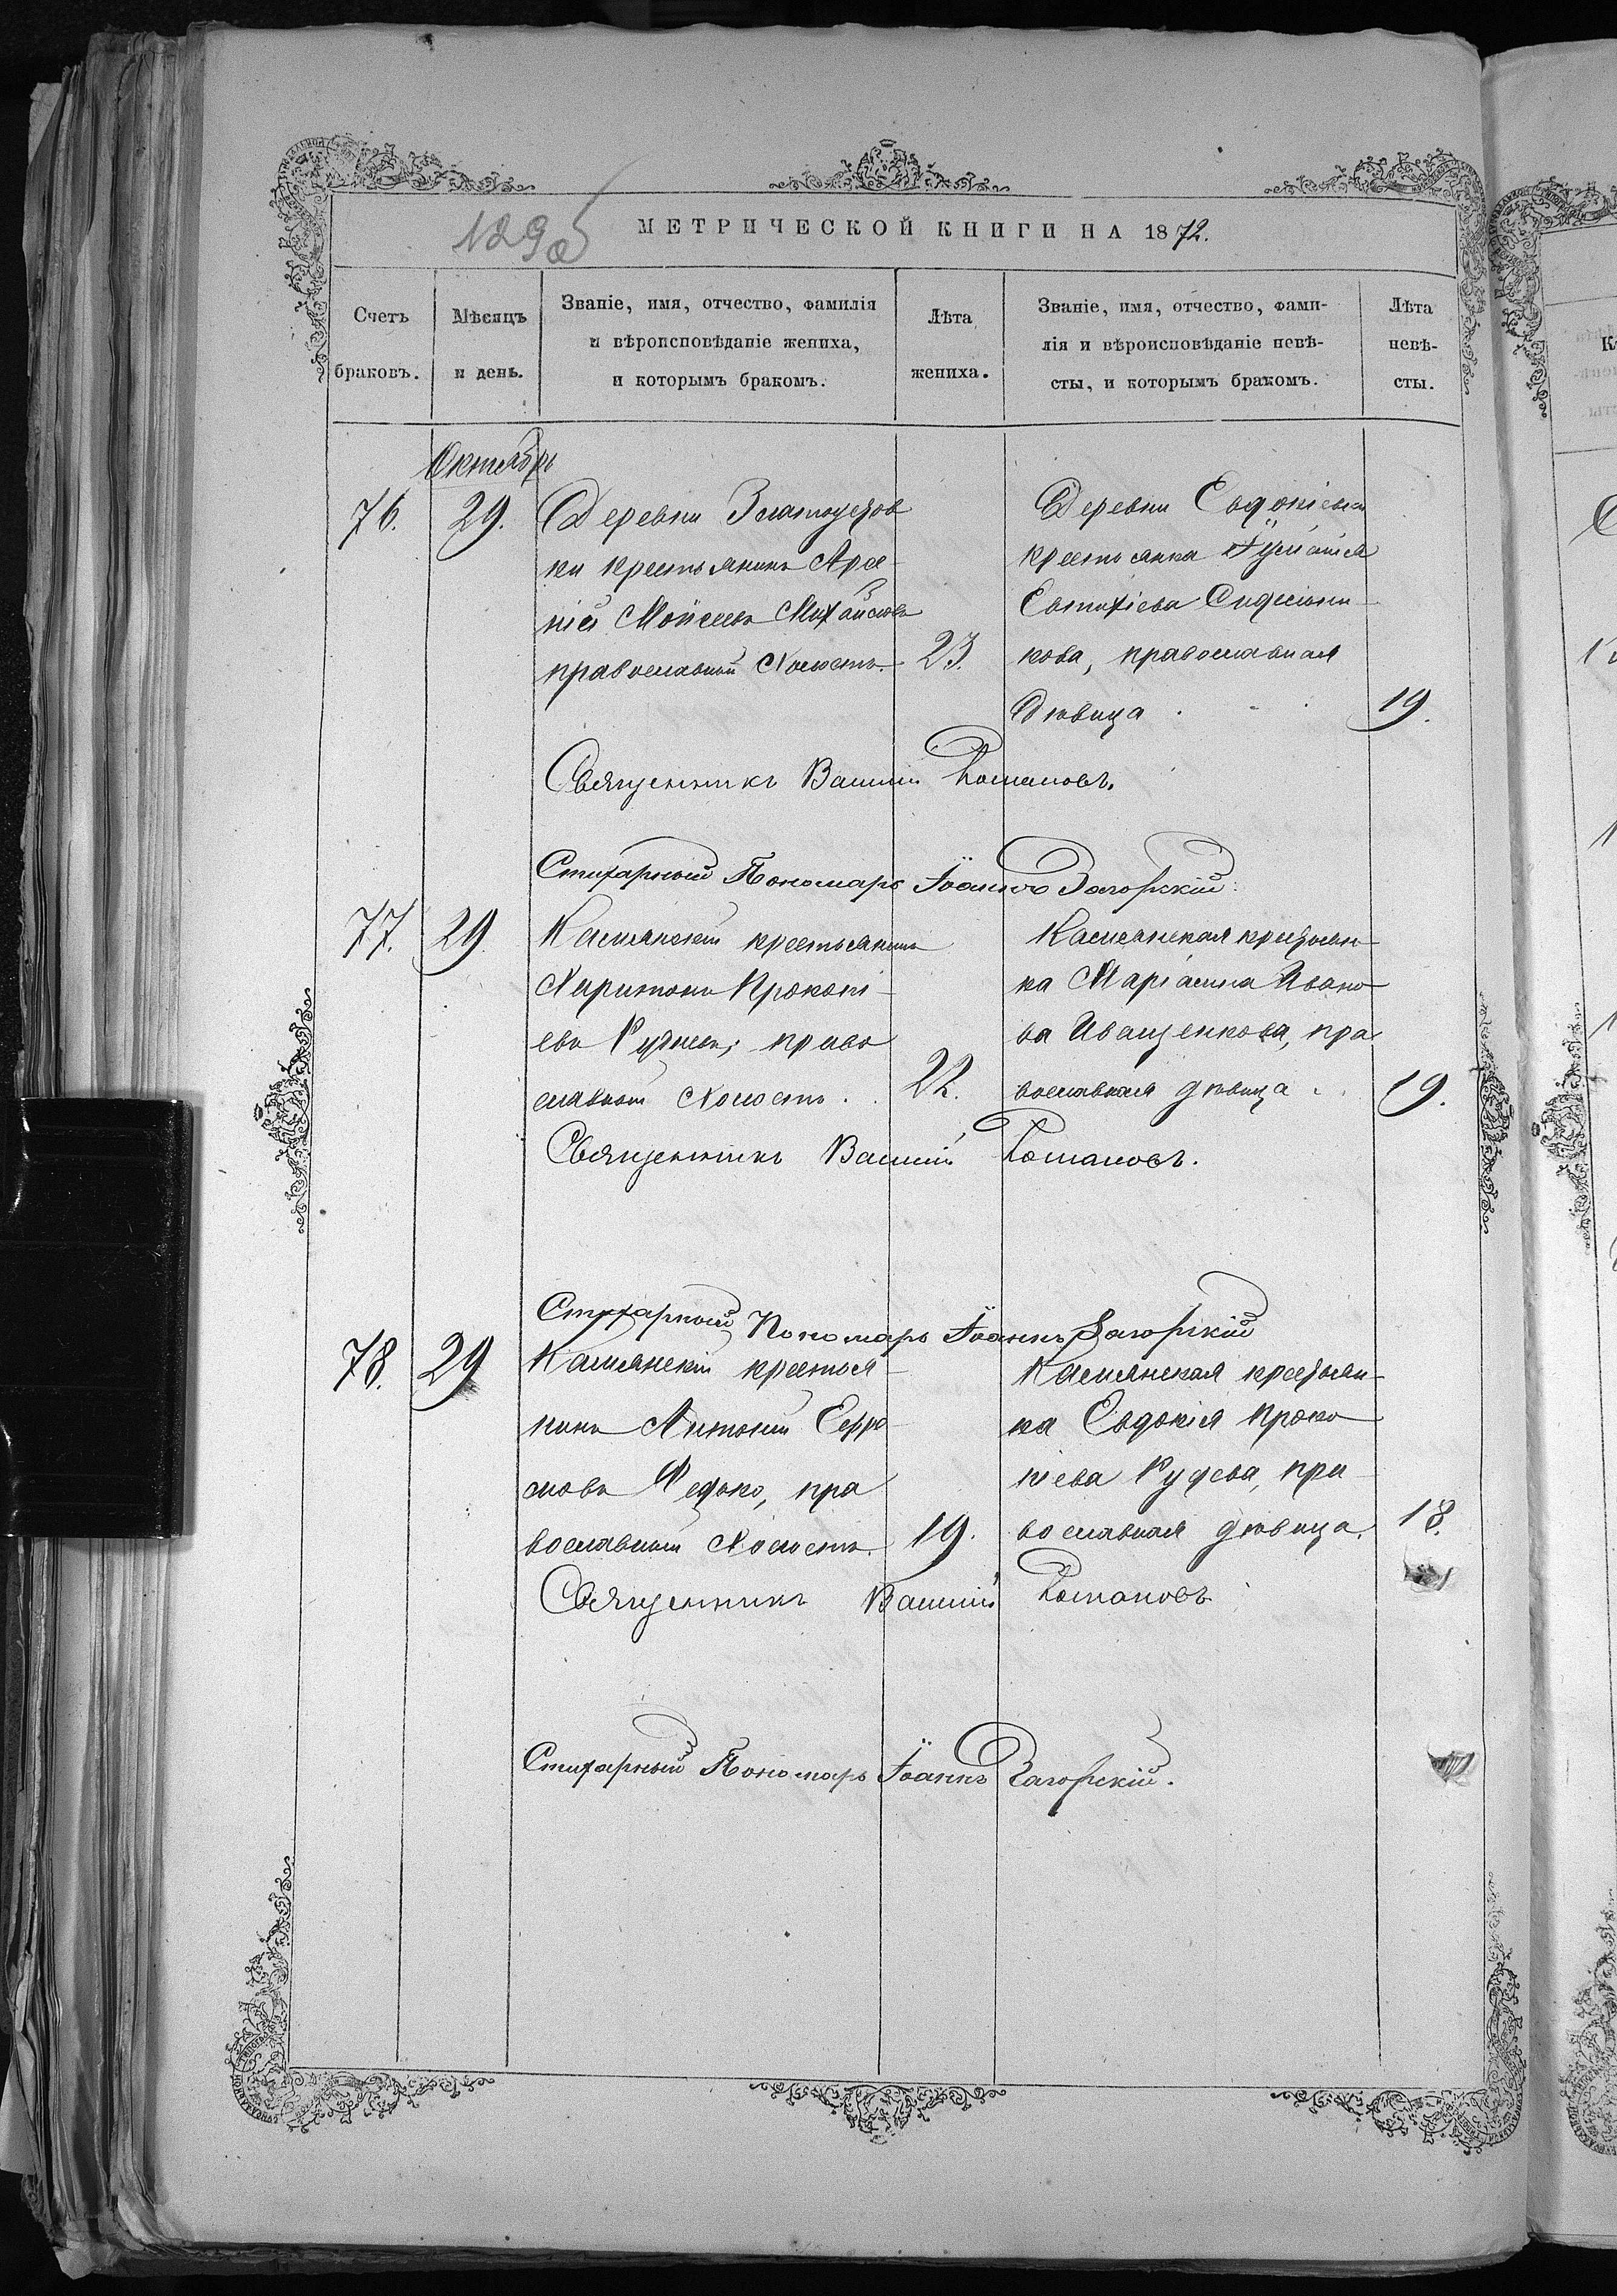 129об
МЕТРИЧЕСКОЙ КНИГИ НА 1872.
Счетъ браковъ.
Мѣсяцъ и день.
Званіе, имя, отчество, фамилія
и вѣроисповѣданіе жениха,
и которымъ бракомъ.
Лѣта жениха.
Званіе, имя, отчество, фами-
лія и вѣроисповѣданіе невѣ-
сты, и которымъ бракомъ.
Лѣта невѣ-
сты.
Октябрь
76.
29.
Деревни Златоустов
ки крестьянинъ Арсе-
ній Моисеевъ Михайловъ
православный Холостъ.
23.
Деревни Евдокіевки
крестьянка Іуліанія
Евтихіева
кова, православная
дѣвица
19.
Священникъ Василій Романовъ.
Стихарный Пономарь Іоаннъ Загорскій.
77.
29
Камянскій крестьянинъ
Харитонъ Прокопі-
евъ право
славный Холостъ.
22.
Камянская крестьян-
ка Маріанна Ивано-
ва Иващенкова, пра
вославная дѣвица
19.
Священникъ Василій Романовъ.
Стихарный Пономарь Іоаннъ Загорскій
78.
29
Камянскій крестья-
нинъ Антоній Ефре-
мовъ Федько, пра
вославный Холостъ.
19.
Камянская крестьян-
ка Евдокія Проко-
піева Рудева, пра-
вославная дѣвица.
18.
Священникъ Василій Романовъ
Стихарный Пономарь Іоаннъ Загорскій.